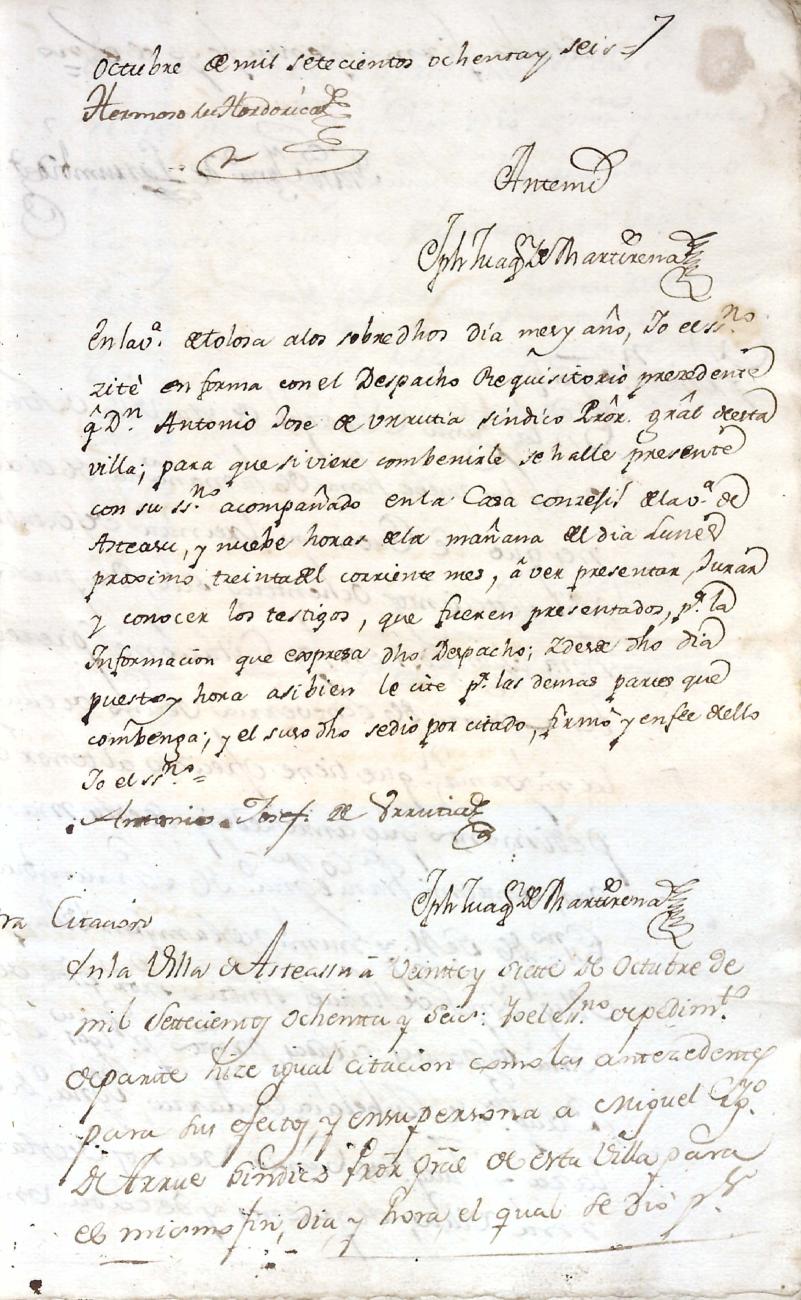 Octubre de mil setecientos ochenta y seis =
Hermoso de Hordorica
Ante mi
Jph Juaqn. de Martirena
En la va. de tolosa a los sobre dhos dia mes y año, Yo el ssno.
zitè en forma con el Despacho Requisitorio prezedente
a Dn. Antonio Jose de Urrutia sindico Prôr. grâl de esta
villa; para que si viere combenirle se halle presente
con su ssno. acompañado en la Casa conzejil de la va. de
Asteasu, y nuebe horas de la mañana del dia Lunes
proximo treinta del corriente mes, â ver presentar, Jurar
y conocer los testigos, que fueren presentados, pa. la
Informacion que expresa dho Despacho; dho dia
puesto y hora asibien le cite pa. las demas partes que
combenga; y el suso dho se dio por citado, firmò y en fee de ello
Yo el ssno. =
Antonio Josef de Urrutia
Jph Juaqn. de Martirena
Citacion
En la Villa de Asteassu â Veinte y siete de Octubre de
mil Settecientos Ochentta y Seis: Yo el Ssno. de pedimto.
de parte hize igual citacion como las antezedentes
para sus efectos, y en su persona a Miguel Ygo.
de Arrue Sindico Prôr Grâl de esta Villa para
el mismo fin, dia, y hora el qual se diò pr.